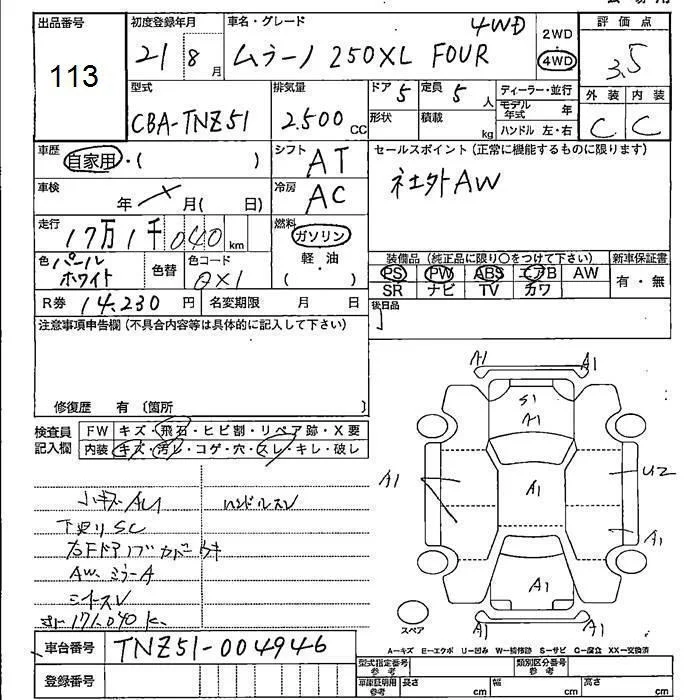 出品番号
113
初度登録年月
21 8月
車名・グレード
4WD
ムラーノ 250XL FOUR
2WD
4WD
評価点
3.5
外装 内装
C C
型式
CBA-TNZ51
排気量
2.500 cc
ドア 5
定員 5 人
形状
積載 kg
ディーラー・並行
モデル年式 年
ハンドル 左・右
車歴
自家用・( )
シフト AT
車検
年 月( 日)
冷房 AC
走行
17万1千040 km
燃料
ガソリン
軽・油
( )
色 パール
ホワイト
色替
色コード
QX1
R券 14,230 円 名変期限 月 日
セールスポイント(正常に機能するものに限ります)
社外AW
装備品(純正品に限り○をつけて下さい) 新車保証書
PS PW ABS エアB AW
有・無
SR ナビ TV カワ
後日品
注意事項申告欄(不具合内容等は具体的に記入して下さい)
修復歴 有〔箇所 〕
検査員
記入欄
FW キズ・飛石・ヒビ割・リペア跡・X要
内装 キズ・汚レ・コゲ・穴・スレ・キレ・破レ
小キズAU
ハンドルスレ
下廻りSC
右Fドアノブカバーウキ
AW、ミラーA
シートスレ
171,040 k
車台番号 TNZ51-004946
登録番号
A1 A1
S1
A1
A1
A1
U2
A1
A1
A1 A1
スペア
A—キズ E—エクボ U—凹み W—補修跡 S—サビ C—腐食 XX—交換済
型式指定番号 参考
類別区分番号 参考
車庫証明用 参考
長さ cm 幅 cm 高さ cm